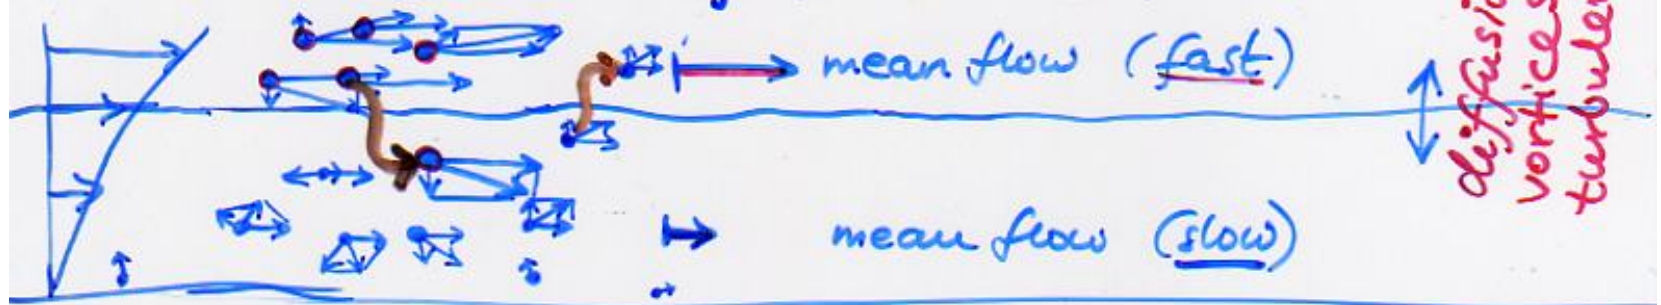 mean flow (fast)
mean flow (slow)
diffusio
vortices
turbule